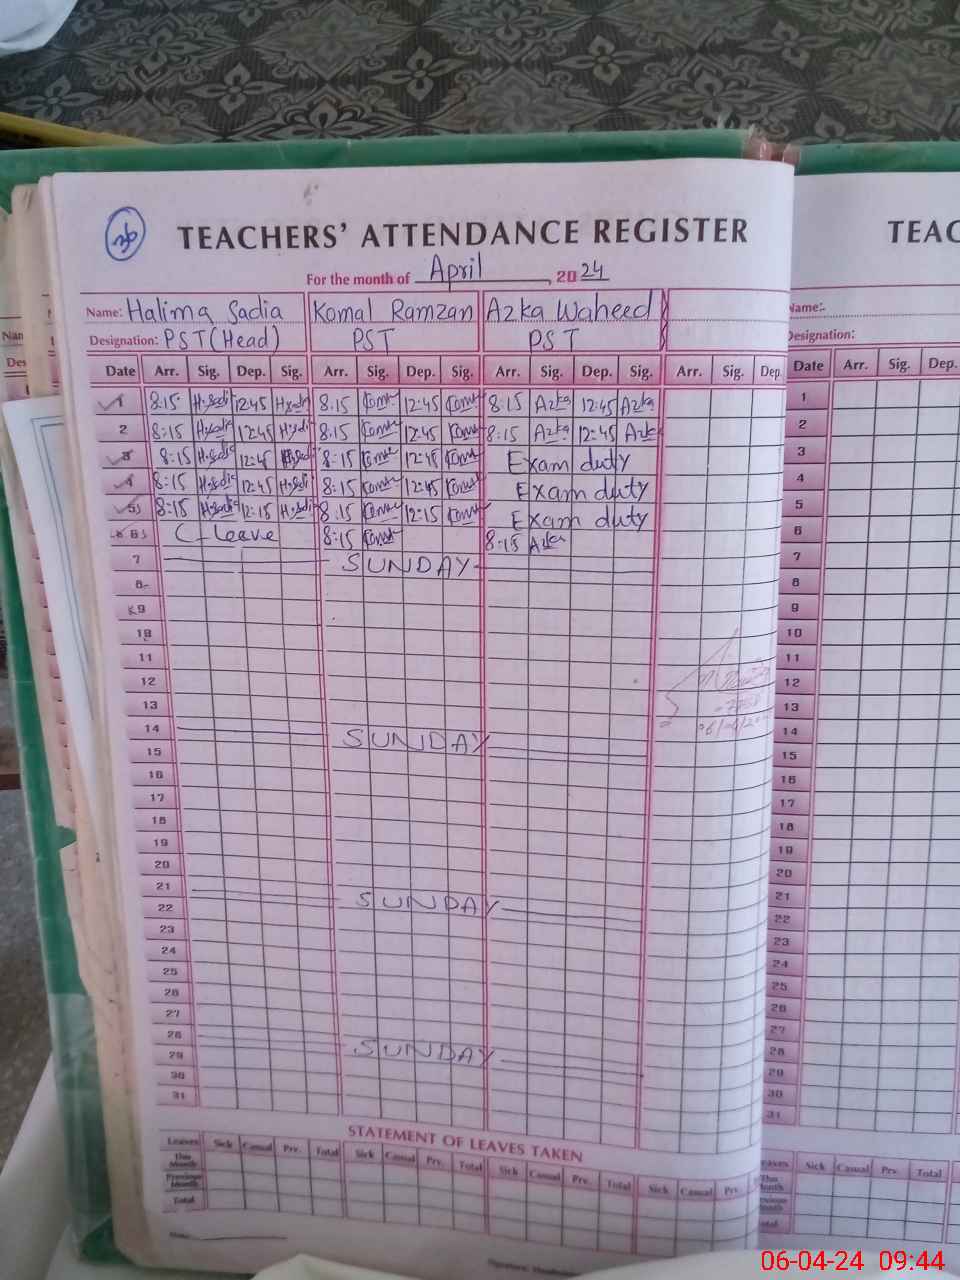 36
TEACHERS' ATTENDANCE REGISTER
For the month of April, 2024
Name: Halima Sadia Komal Ramzan Azka Waheed
Designation: PST(Head) PST PST
Date Arr. Sig. Dep. Sig. Arr. Sig. Dep. Sig. Arr. Sig. Dep. Sig. Arr. Sig. Dep.
1 8:15 H.Sadia 12:45 H.Sadia 8:15 Komal 12:45 Komal 8:15 Azka 12:45 Azka
2 8:15 H.Sadia 12:45 H.Sadia 8:15 Komal 12:45 Komal 8:15 Azka 12:45 Azka
3 8:15 H.Sadia 12:45 H.Sadi 8:15 Komal 12:45 Komal Exam duty
4 8:15 H.Sadia 12:45 H.Sadi 8:15 Komal 12:45 Komal Exam duty
5 8:15 H.Sadia 12:15 H.Sadi 8:15 Komal 12:15 Komal Exam duty
6 C-leave 8:15 Komal 8:15 Azka
7 SUNDAY
8
9
10
11
12
13
14 SUNDAY
15
16
17
18
19
20
21 SUNDAY
22
23
24
25
26
27
28 SUNDAY
29
30
31
STATEMENT OF LEAVES TAKEN
Leaves Sick Casual Prv. Total Sick Casual Prv. Total Sick Casual Prv. Total Sick Casual Prv.
This Month
Previous Month
Total
TEAC
Name:
Designation:
Date Arr. Sig. Dep.
1
2
3
4
5
6
7
8
9
10
11
12
13
14
15
16
17
18
19
20
21
22
23
24
25
26
27
28
29
30
31
Sick Casual Prv. Total
06-04-24 09:44